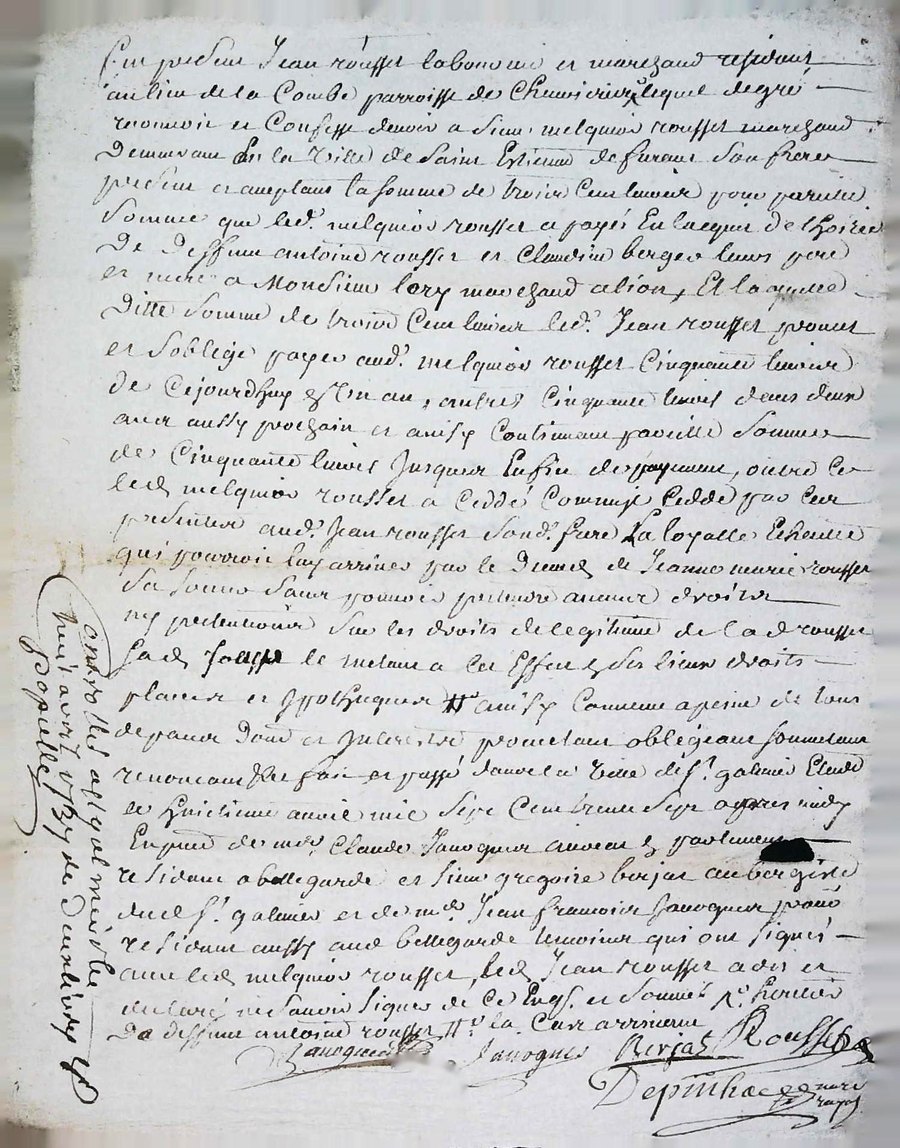 fut present Jean rousset laboureur et marchand residant
au lieu de la Combe parroisse de Chevrieres lequel de gré
reconnoit et Confesse devoir a sieur melquior rousset marchand
demeurant En la ville de Saint Estienne de furant son frere
present et aceptant la somme de trois Cent livres pour pareille
Somme que led. melquior rousset a payés En lacquit de lhoirie
De deffunt antoine rousset et Claudine berger leurs pere
et mere a Monsieur lory marchand a lion, Et laquelle
ditte somme de trois Cent livres led. Jean rousset promet
et soblige payer aud. melquior rousset Cinquante livres
de Cejourdhuy En un an, autres Cinquante livres dans deux
ans aussy prochain et ainsy Continuant pareille Somme
de Cinquante livres Jusques Enfin de payement, outre ce
led melquior rousset a Ceddé Comme il Cedde par Ces
presentes aud. Jean rousset sond. frere la loyalle Echeutte
qui pourroit luy arriver par le deces de Jeanne marie rousset
sa soeur sans pouvoir pretendre aucuns droits
ny pretentions sur les droits de legitime de lad rousset
le mettant a Ces Effets En ses lieux droits
places et Ypotheques ainsy Convenu a peine de tous
depans dom et Interests promettant obligeant soumettant
renonceant fait et passé dans la ville de St. galmier Etude
le huitieme avril mil Sept Cent trente Sept apres midy
En presence de me. Claude Janoques avocat En parlement
residant a bellegarde et sieur gregoire berjat aubergiste
dud St. galmier et de me. Jean francois Janoques
residant aussy aud bellegarde temoins qui ont signés
avec led melquior rousset, led Jean rousset a dit et
declaré ne savoir signer de Ce Enqs. et Sommé
De deffunt antoine rousset la Cas arrivant
Janoques Berjat Rousset
Depinhac nore royal
Controllé a st galmier le
huit avril 1737